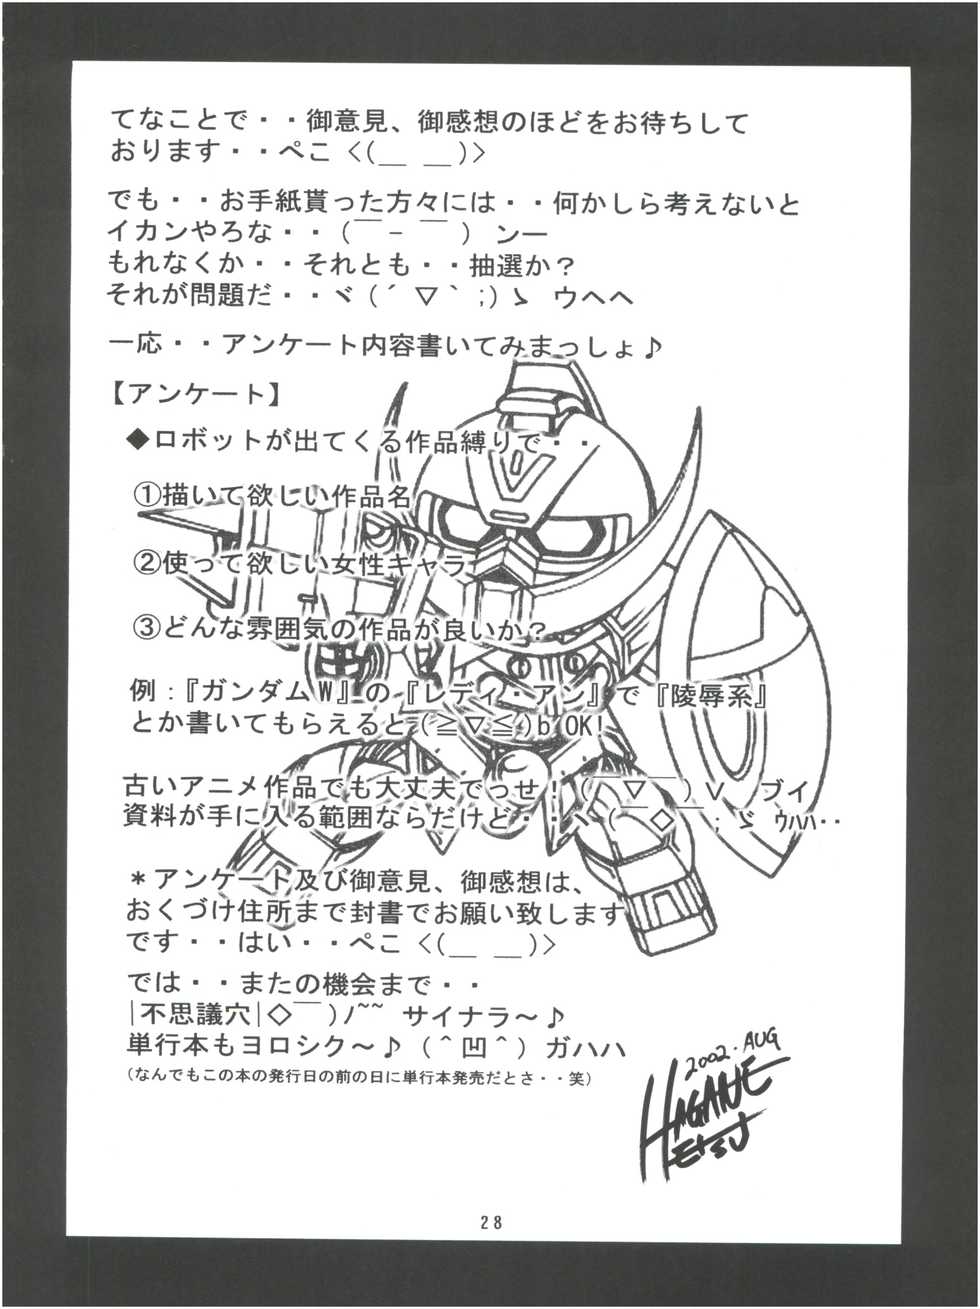 てなことで・・御意見、御感想のほどをお待ちして
おります・・ぺこ <(＿ ＿)>
でも・・お手紙貰った方々には・・何かしら考えないと
イカンやろな・・(￣－￣) ンー
もれなくか・・それとも・・抽選か？
それが問題だ・・ヾ(´▽｀;)ゝ ウヘヘ
一応・・アンケート内容書いてみまっしょ♪
【アンケート】
◆ロボットが出てくる作品縛りで・・
①描いて欲しい作品名
②使って欲しい女性キャラ
③どんな雰囲気の作品が良いか？
例：『ガンダムW』の『レディ・アン』で『陵辱系』
とか書いてもらえると(≧▽≦)b OK!
古いアニメ作品でも大丈夫でっせ！(￣▽￣)Ｖ ブイ
資料が手に入る範囲ならだけど・・ヽ(￣◇￣;ゞ ｳﾊﾊ‥
＊アンケート及び御意見、御感想は、
おくづけ住所まで封書でお願い致します
です・・はい・・ぺこ <(＿ ＿)>
では・・またの機会まで・・
|不思議穴|◇￣)ﾉ~~ サイナラ～♪
単行本もヨロシク～♪(＾凹＾) ガハハ
(なんでもこの本の発行日の前の日に単行本発売だとさ・・笑)
2002・AUG
HAGANE
TETSU
28